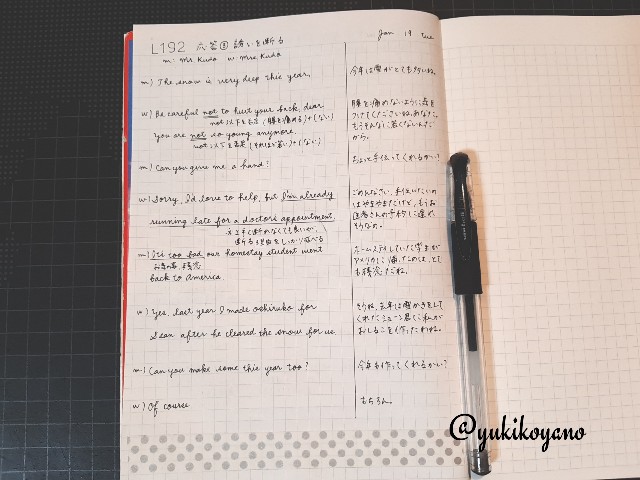 Jan 19 tue
L192 応答③ 誘いを断る
m: Mr. Kudo w: Mrs. Kudo
m) The snow is very deep this year.
今年は雪がとても多いね。
w) Be careful not to hurt your back, dear
not以下を否定(腰を痛める)+(ない)
You are not so young anymore.
not以下を否定(それほど若い)+(ない)
腰を痛めないように気を
つけてくださいね、あなた。
もうそんなに若くないんだ
から。
m) Can you give me a hand?
ちょっと手伝ってくれるかい?
w) Sorry, I'd love to help, but I'm already
running late for a doctor's appointment.
※上手く断わらなくても良いが、
断わる理由をしっかり述べる
ごめんなさい、手伝いたいの
はやまやまだけど、もうお
医者さんの予約に遅れ
そうなの。
m) It's too bad our homestay student went
お気の毒、残念
back to America.
ホームステイしていた学生が
アメリカに帰ったのは、とて
も残念だね。
w) Yes, last year I made oshiruko for
Sean after he cleared the snow for us.
そうね、去年は雪かきをして
くれたショーン君に私が
おしるこを作ったわね。
m) Can you make some this year too?
今年も作ってくれるかい?
w) Of course
もちろん。
@yukikoyano